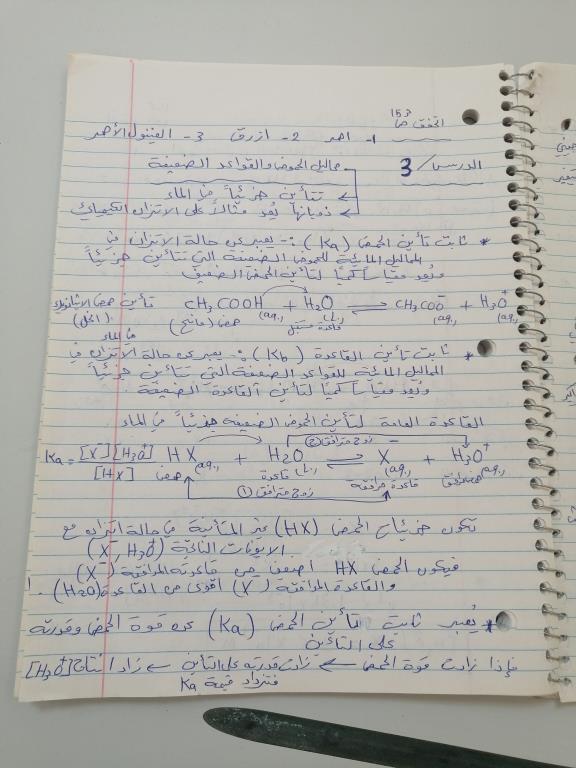 اتحقق ص 153
1- احمر 2- ازرق 3- الفينول الأحمر
الدرس / 3 محاليل الحموض والقواعد الضعيفة
تتأين جزئياً في الماء
ذوبانها يُعد مثالاً على الاتزان الكيميائي
* ثابت تأين الحمض (Ka) :- يعبر عن حالة الاتزان في
المحاليل المائية للحموض الضعيفة التي تتأين جزئياً
ويُعد مقياساً كمياً لتأين الحمض الضعيف
CH3COOH (aq) + H2O (L) ⇌ CH3COO⁻ (aq) + H3O⁺ (aq) تأين حمض الايثانويك
حمض (مانح) قاعدة مستقبل (الخل)
في الماء
* ثابت تأين القاعدة (Kb) :- يعبر عن حالة الاتزان في
المحاليل المائية للقواعد الضعيفة التي تتأين جزئياً
ويُعد مقياساً كمياً لتأين القاعدة الضعيفة
القاعدة العامة لتأين الحموض الضعيفة جزئياً في الماء
زوج مترافق (2)
Ka = [X⁻][H3O⁺] / [HX] HX (aq) + H2O (L) ⇌ X⁻ (aq) + H3O⁺ (aq)
حمض قاعدة قاعدة مرافقة حمض مرافق
زوج مترافق (1)
تكون جزيئات الحمض (HX) غير المتأينة في حالة اتزان مع
الايونات الناتجة (X⁻, H3O⁺)
فيكون الحمض HX اضعف من قاعدته المرافقة (X⁻)
والقاعدة المرافقة (X⁻) أقوى من القاعدة (H2O).
* يُعبر ثابت تأين الحمض (Ka) عن قوة الحمض وقدرته
على التأين
فإذا زادت قوة الحمض ← زادت قدرته على التأين ← زاد انتاج [H3O⁺]
فتزداد قيمة Ka